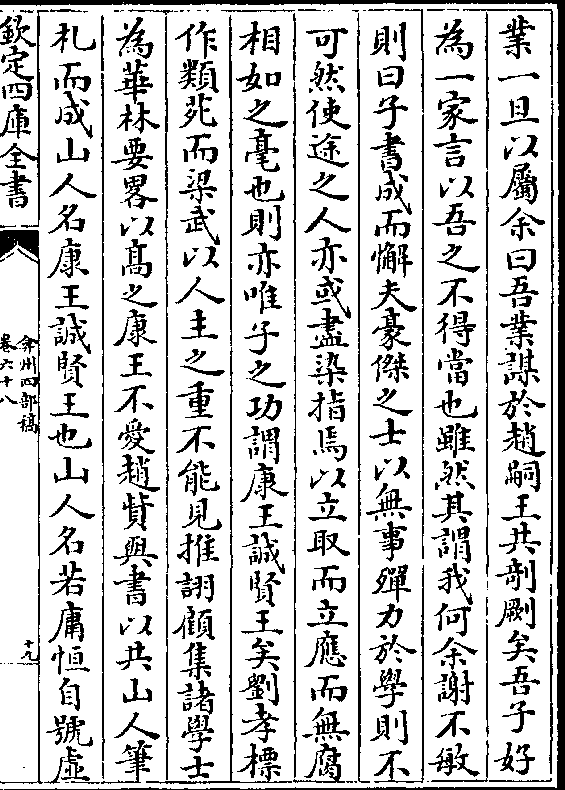 業一旦以屬余曰吾業謀於趙嗣王共剞劂矣吾子好
為一家言以吾之不得當也雖然其謂我何余謝不敏
則曰子書成而懈夫豪傑之士以無事殫力於學則不
可然使途之人亦或盡染指焉以立取而立應而無腐
相如之毫也則亦唯子之功謂康王誠賢王矣劉孝標
作類苑而梁武以人主之重不能見推詡顧集諸學士
為華林要畧以高之康王不愛趙賁與書以共山人筆
札而成山人名康王誠賢王也山人名若庸恒自號虛
欽定四庫全書
弇州四部稿
卷六十八
十九